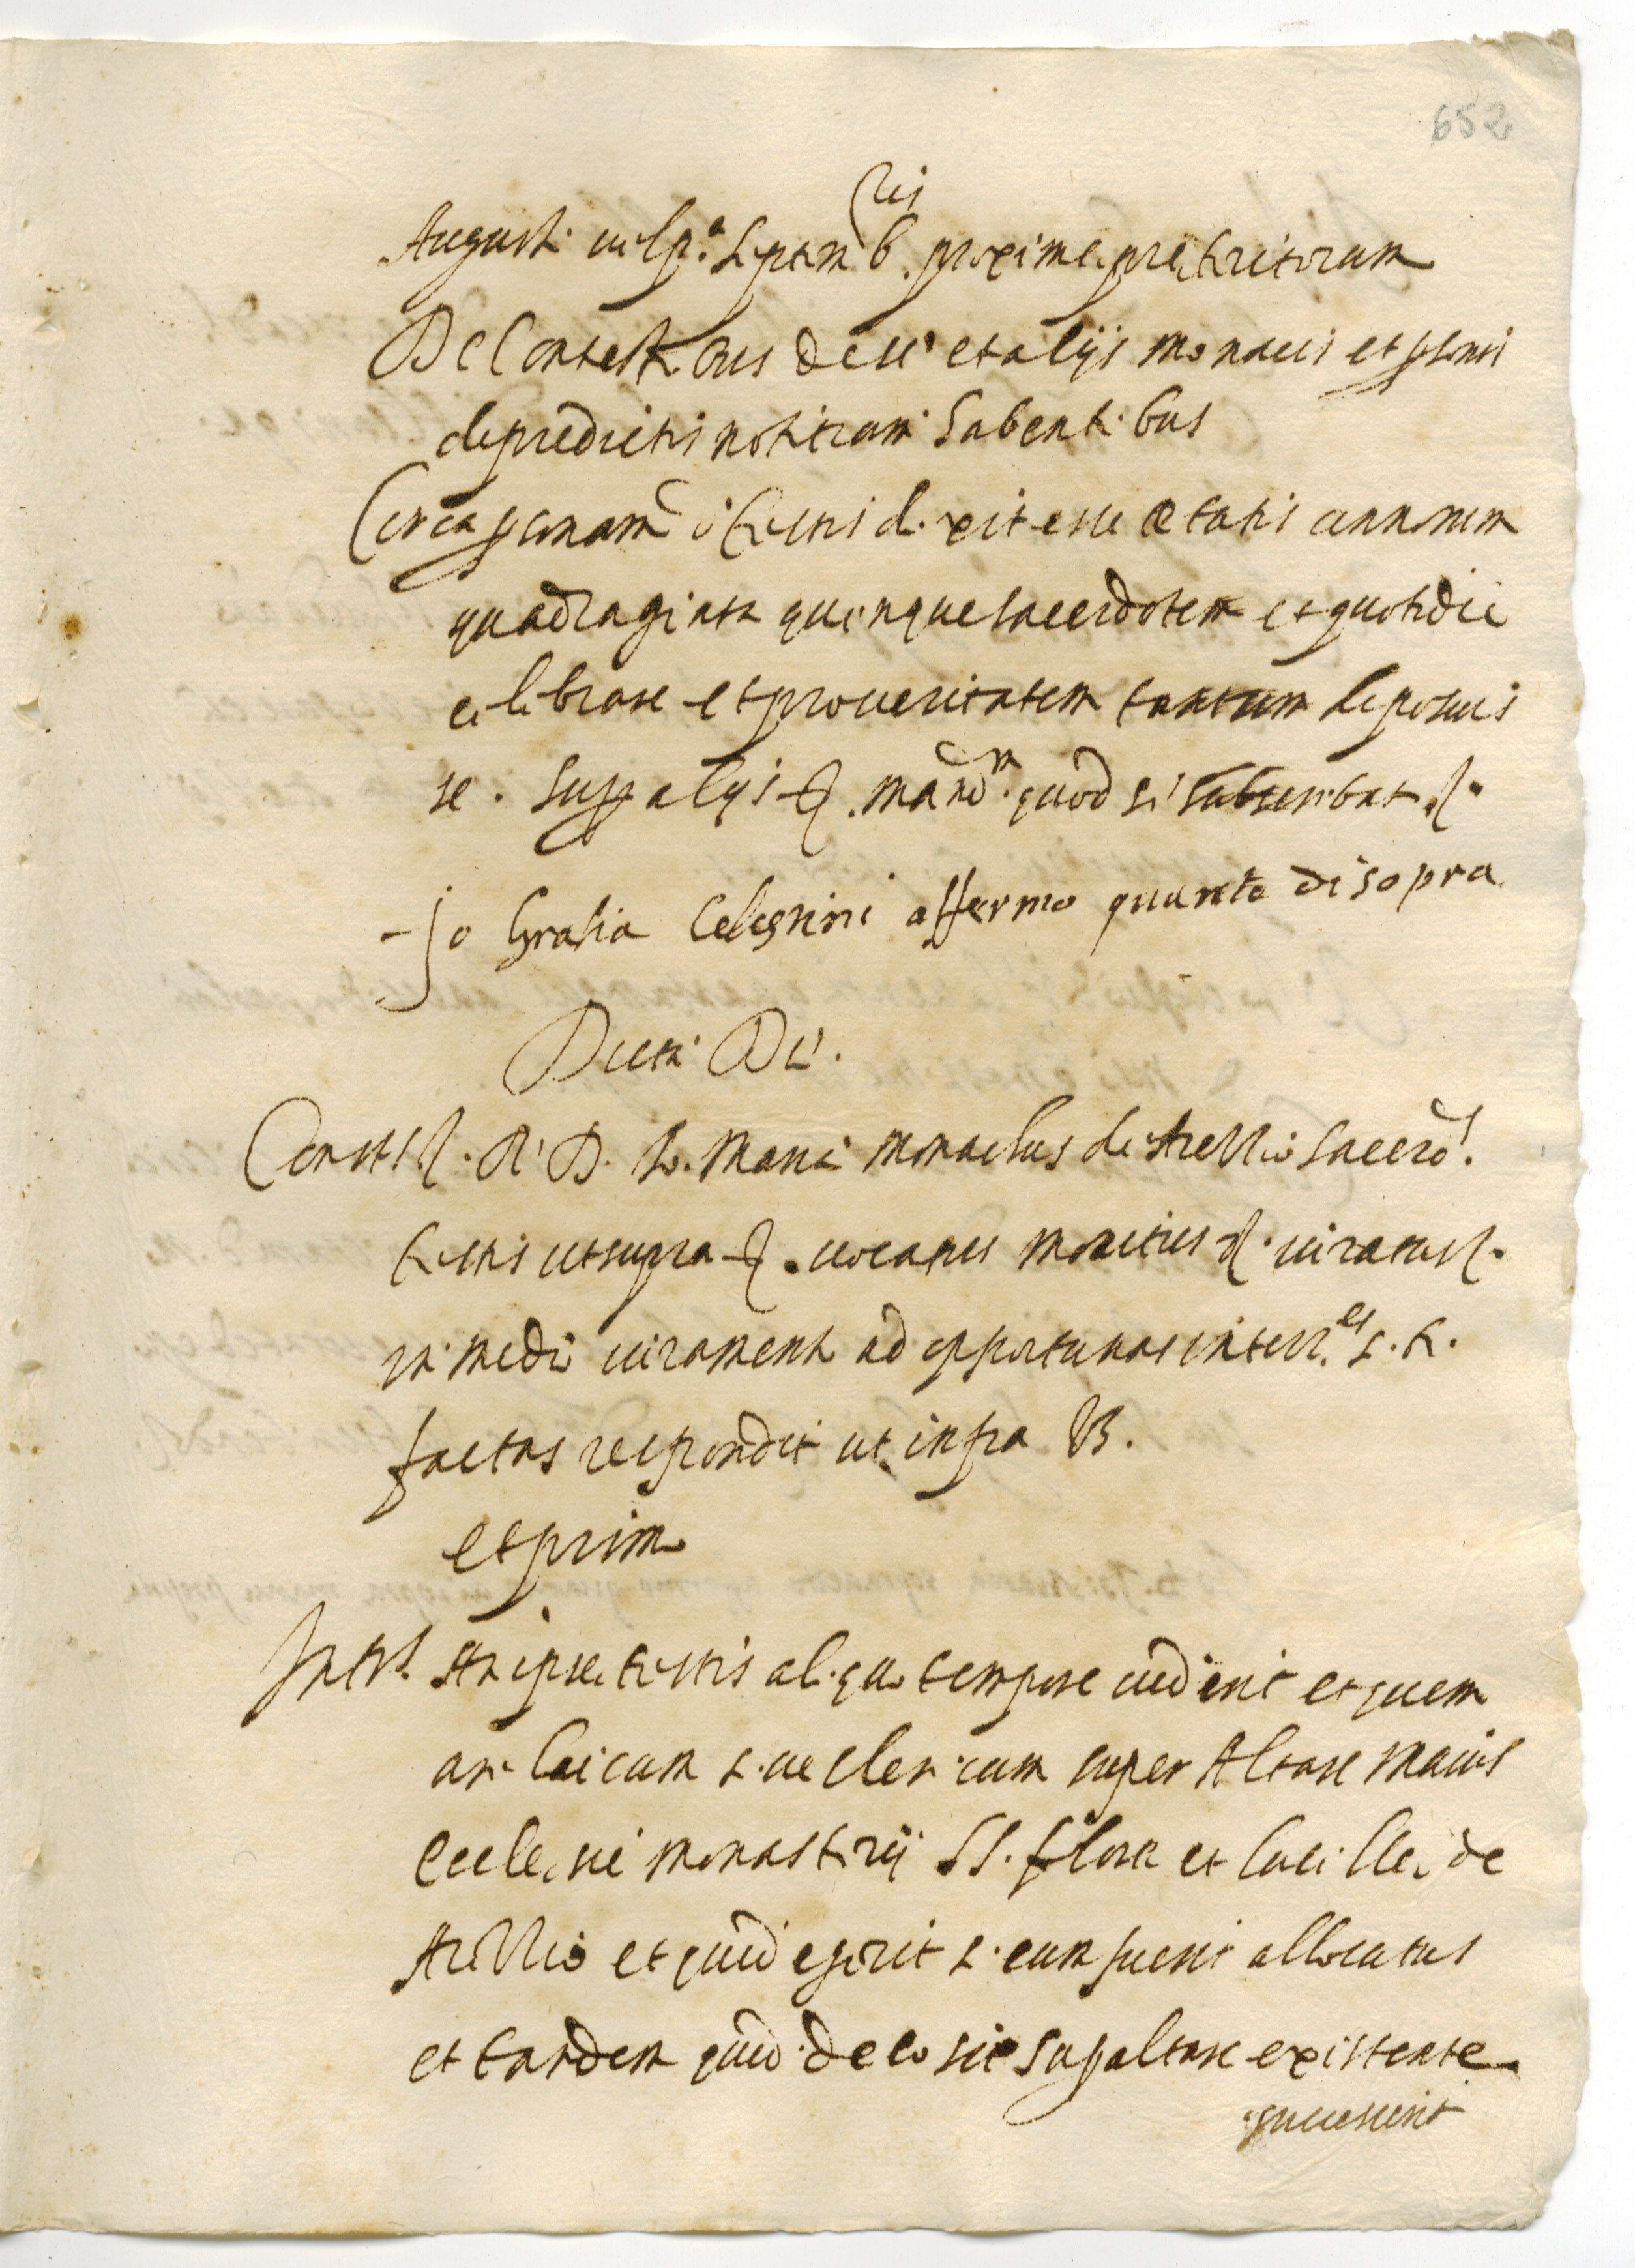 652
Augusti vel p.ᵃ Septemb.ris proxime preteritorum
De Contestibus de se et alijs monacis et psonis
de predictis notitiam habentibus
Circa psonam i testis dixit esse etatis annorum
quadraginta quinque sacerdotem et quotidie
celebrare et pro veritate tantum deposuis
se. Sup alijs & mand.m quod se subscribat &.
Jo Gratia Celestini affermo quanto di sopra
Dicta Die.
Const.s &. R. D. Jo. Maria monachus de Aretio sacerd.
testis ut supra &. vocatus monitus &. iuratus &.
in medio iuramenti ad opportunas interr.es s. t.
factas respondit ut infra
et primo
Int.s An ipse testis aliquo tempore viderit et quem
an laicum sive clericum super Altare maius
Ecclesie monasterij SS. Flore et Lucille de
Aretio et quid egerit si eum fuerit allocutus
et tandem quid de eo sic sup altare existente
successerit